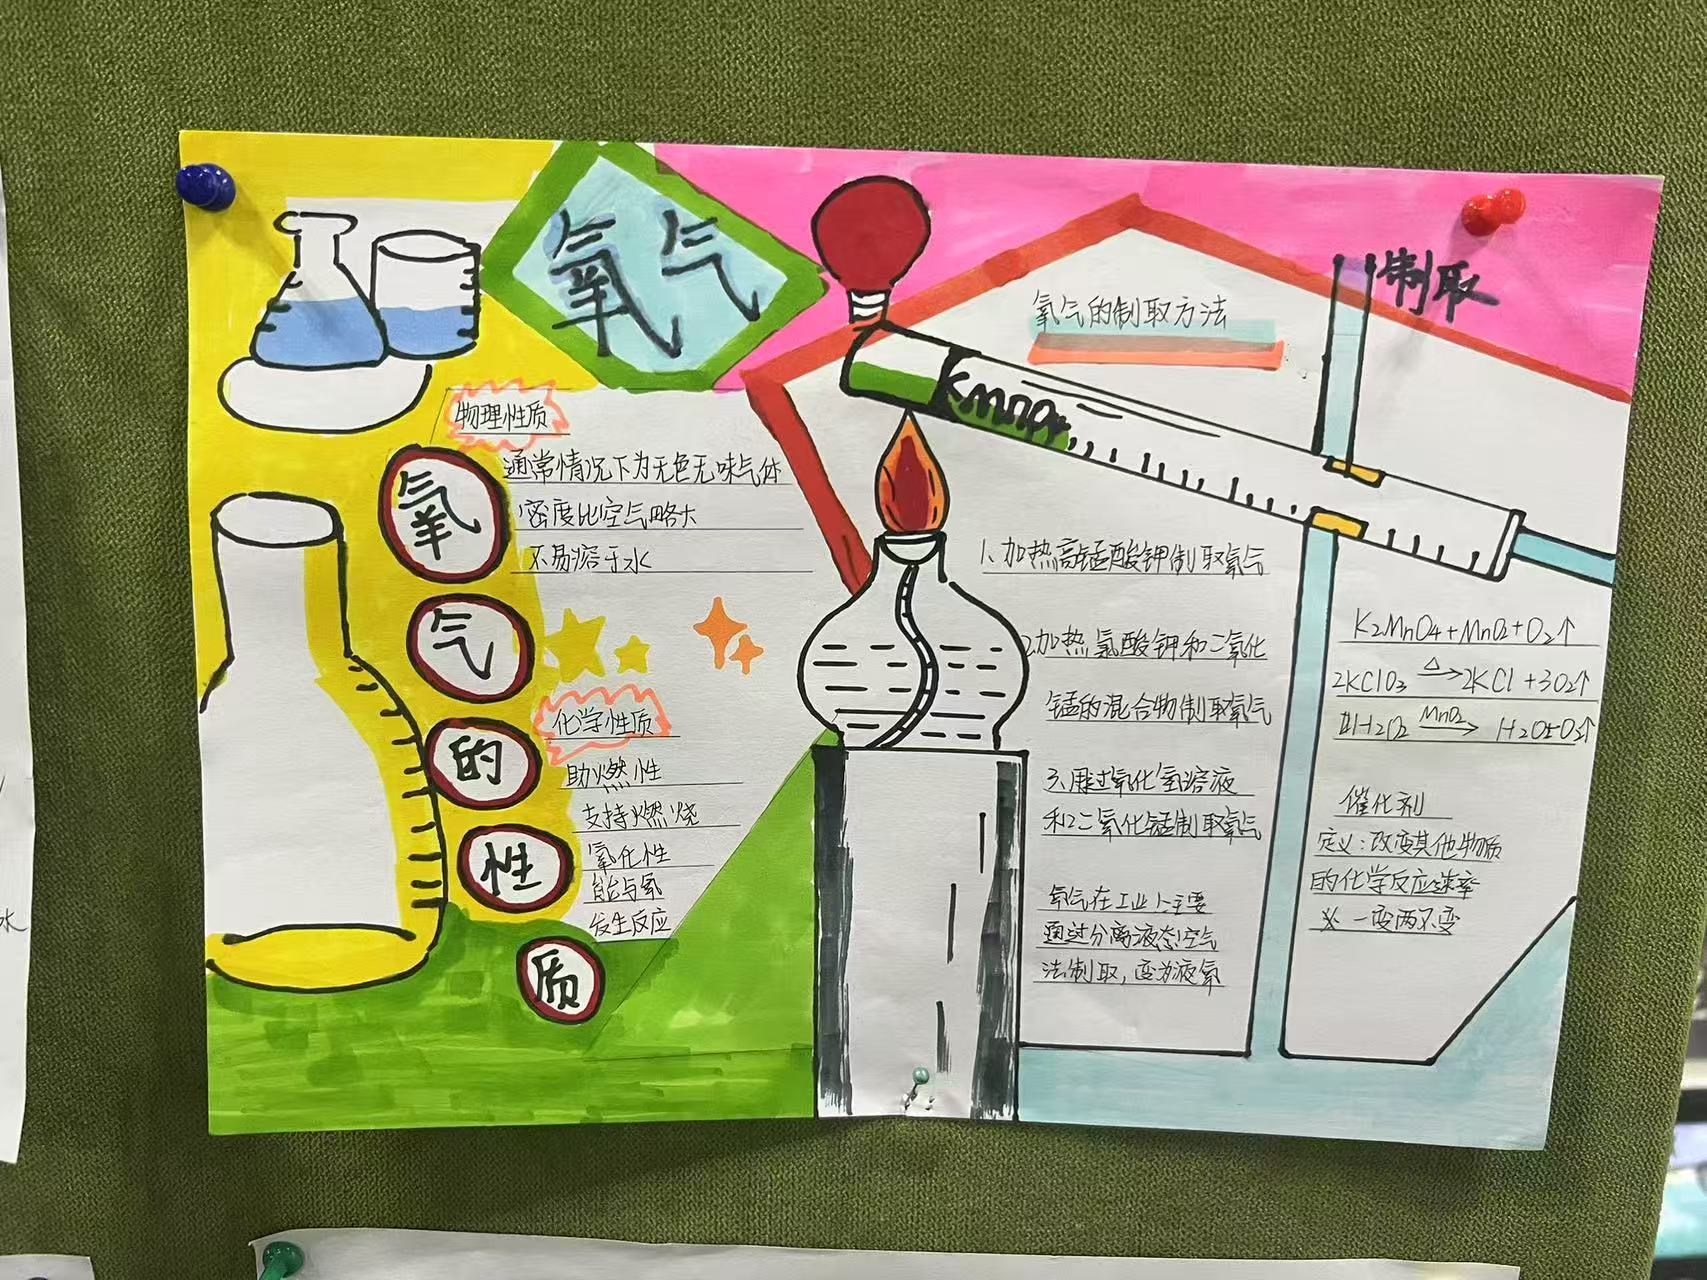 氧气
制取
氧气的制取方法
KMnO4
物理性质
通常情况下为无色无味气体
密度比空气略大
不易溶于水
氧
气
的
性
质
化学性质
助燃性
支持燃烧
氧化性
能与氧
发生反应
1、加热高锰酸钾制取氧气
2、加热氯酸钾和二氧化
锰的混合物制取氧气
3、用过氧化氢溶液
和二氧化锰制取氧气
氧气在工业上主要
通过分离液态空气
法制取，变为液氧
K2MnO4+MnO2+O2↑
2KClO3 △→ 2KCl+3O2↑
H2O2 MnO2→ H2O+O2↑
催化剂
定义：改变其他物质
的化学反应速率
※ 一变两不变
水